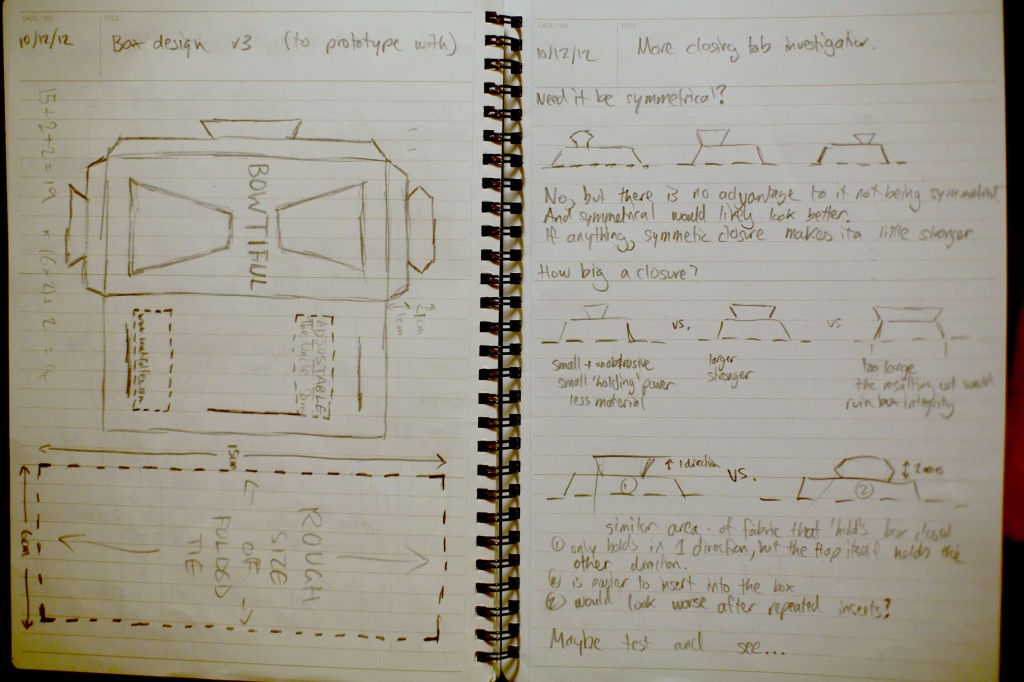 DATE/NO.
TITLE
10/12/12
Box design v3 (to prototype with)
15+2+2=19 x (6x2)+2 = 14
BOWTIFUL
1cm
1cm
ADJUSTABLE
15cm
6cm
ROUGH
SIZE
OF
FOLDED
TIE
DATE/NO.
TITLE
10/12/12
More closing tab investigation.
Need it be symmetrical?
No, but there is no advantage to it not being symmetrical
And symmetrical would likely look better.
If anything, symmetric closure makes it a little stronger.
How big a closure?
vs.
vs
small + unobtrusive
small 'holding' power
less material
larger
stronger
too large
the resulting cut would
ruin box integrity
↑ 1 direction
vs.
↕ 2 ways
①
②
similar area of fabric that 'holds' box closed
① only holds in 1 direction, but the flap itself holds the
other direction.
② is easier to insert into the box
② would look worse after repeated inserts?
Maybe test and see...